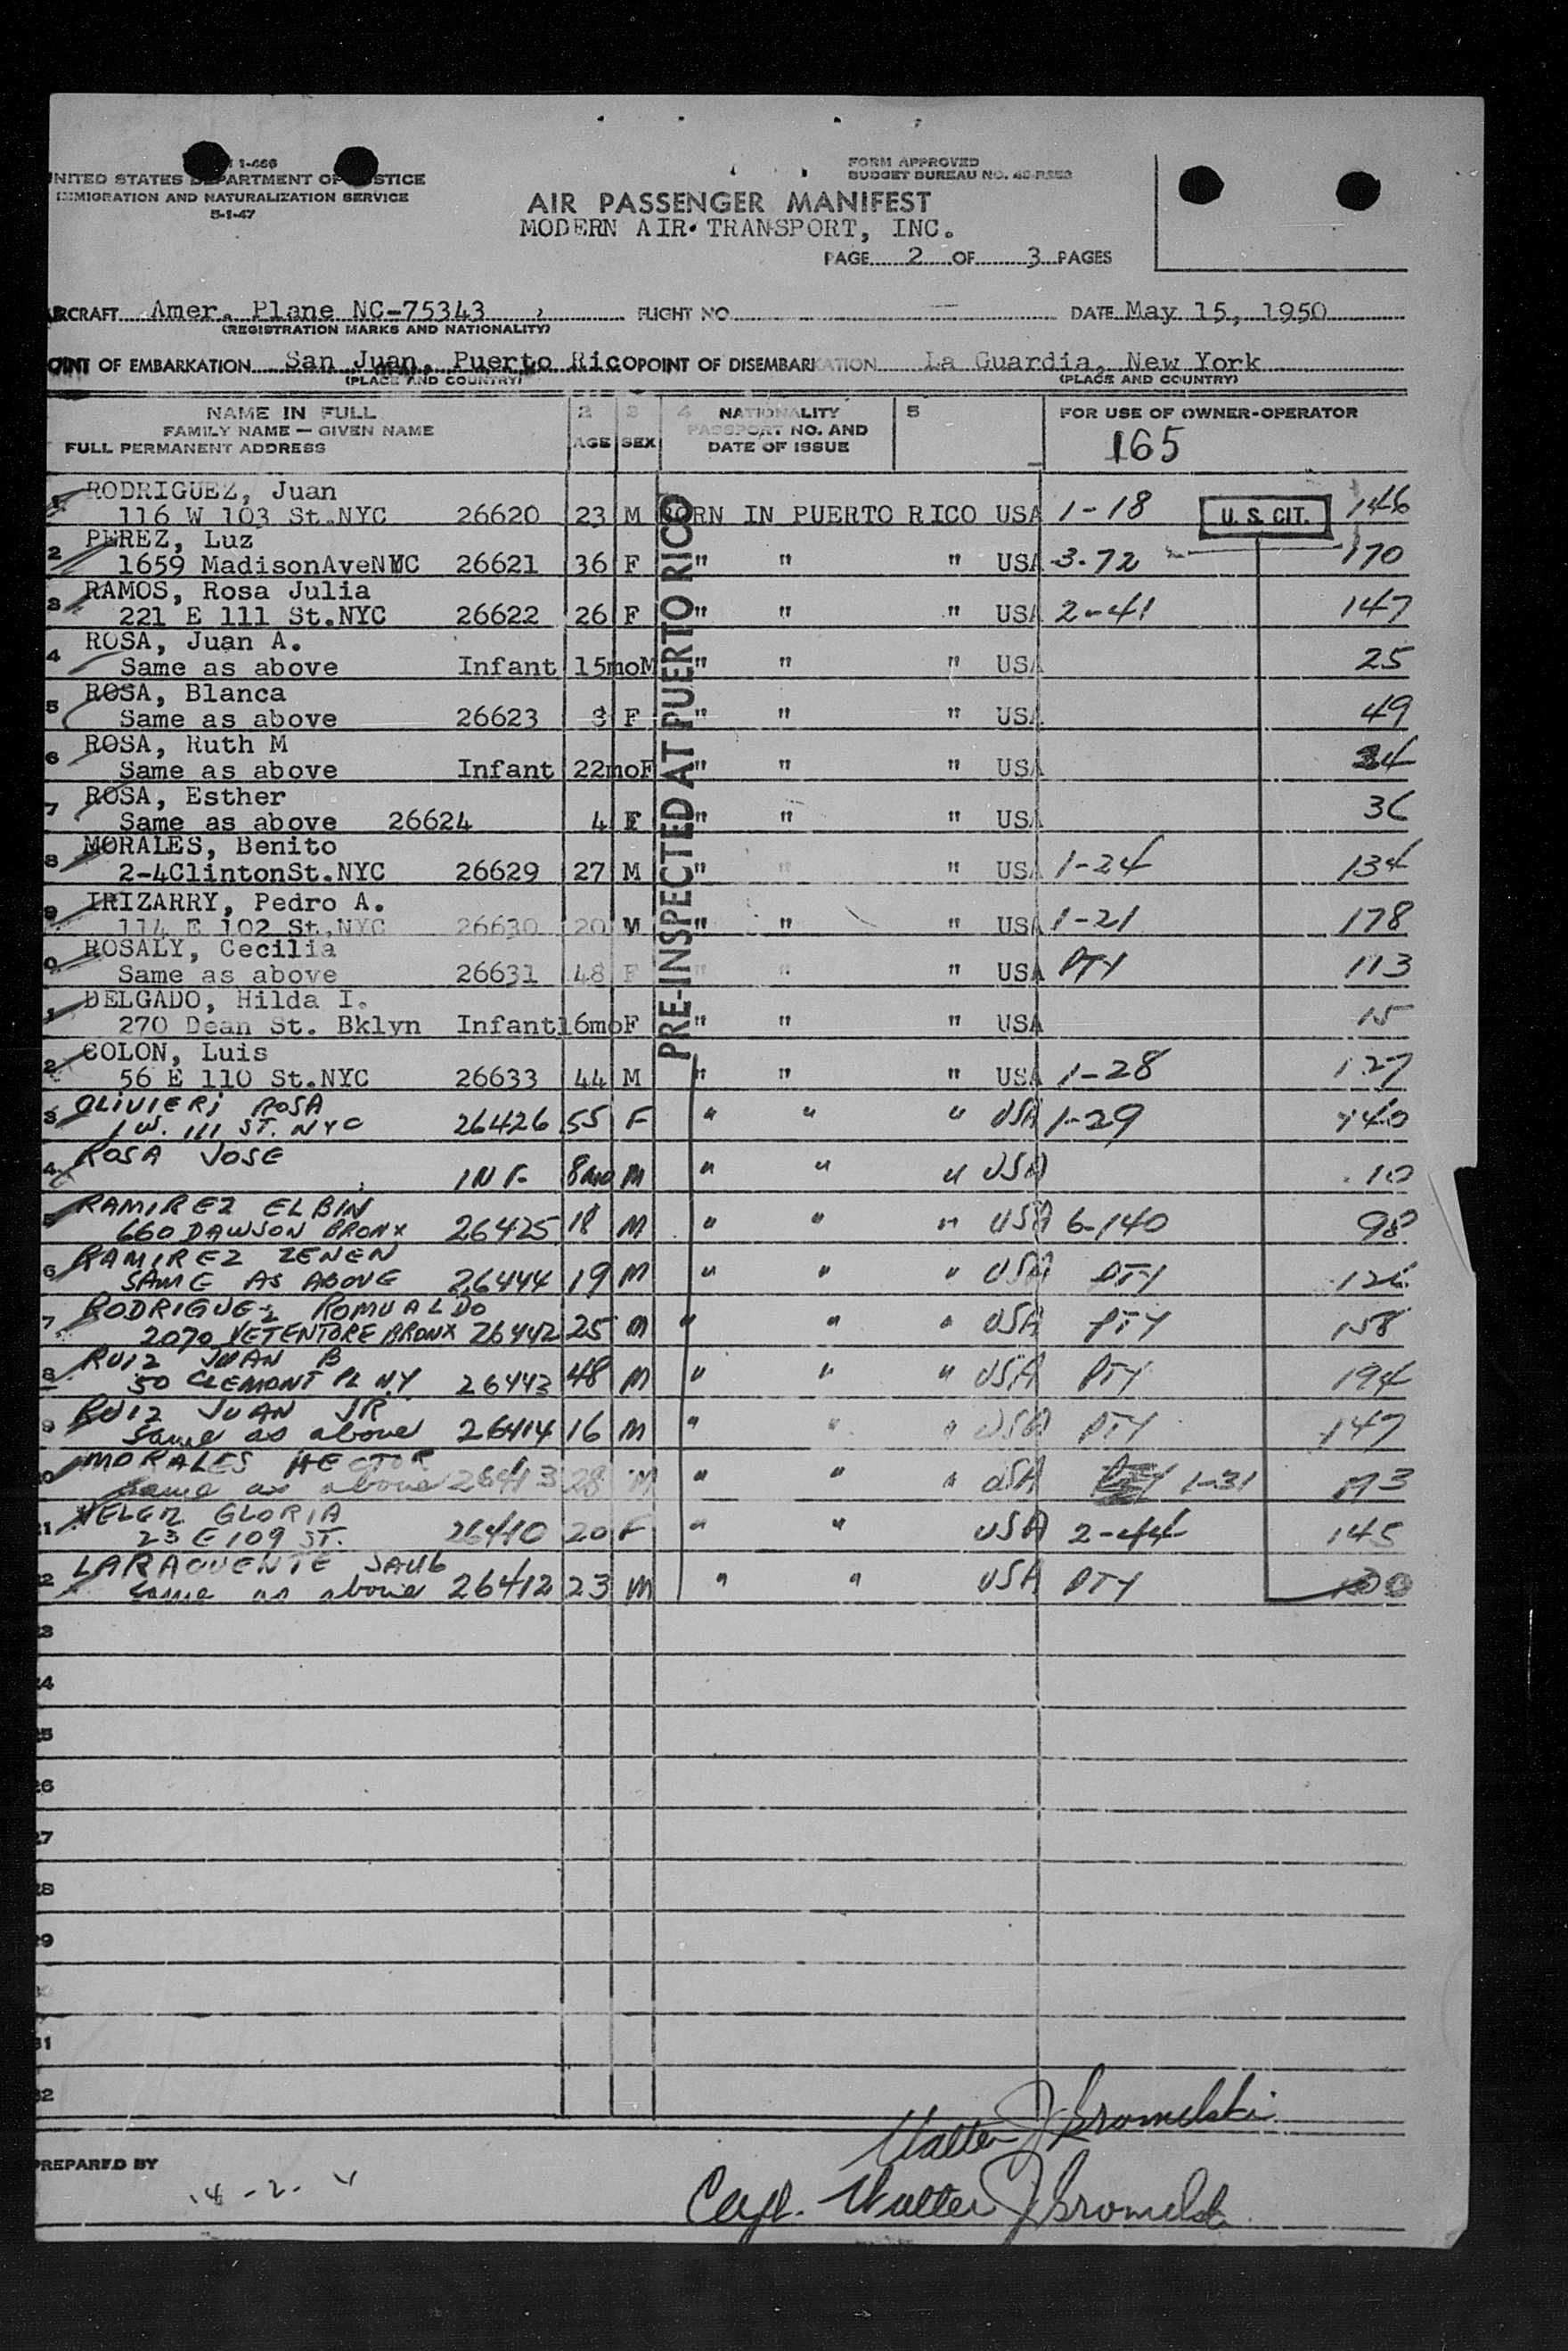 1-466
UNITED STATES DEPARTMENT OF JUSTICE
IMMIGRATION AND NATURALIZATION SERVICE
5-1-47
FORM APPROVED
BUDGET BUREAU NO.
AIR PASSENGER MANIFEST
MODERN AIR TRANSPORT, INC.
PAGE 2 OF 3 PAGES
AIRCRAFT Amer. Plane NC-75343 FLIGHT NO. DATE May 15, 1950
(REGISTRATION MARKS AND NATIONALITY)
POINT OF EMBARKATION San Juan, Puerto Rico POINT OF DISEMBARKATION La Guardia, New York
(PLACE AND COUNTRY) (PLACE AND COUNTRY)
NAME IN FULL 2 3 4 NATIONALITY 5 FOR USE OF OWNER-OPERATOR
FAMILY NAME — GIVEN NAME AGE SEX PASSPORT NO. AND 165
FULL PERMANENT ADDRESS DATE OF ISSUE
PRE-INSPECTED AT PUERTO RICO
U. S. CIT.
1 RODRIGUEZ, Juan
116 W 103 St.NYC 26620 23 M BORN IN PUERTO RICO USA 1-18 146
2 PEREZ, Luz
1659 MadisonAveNYC 26621 36 F " " " USA 3-72 170
3 RAMOS, Rosa Julia
221 E 111 St.NYC 26622 26 F " " " USA 2-41 147
4 ROSA, Juan A.
Same as above Infant 15moM " " " USA 25
5 ROSA, Blanca
Same as above 26623 F " " " USA 49
6 ROSA, Ruth M
Same as above Infant 22moF " " " USA 34
7 ROSA, Esther
Same as above 26624 4 F " " " USA 36
8 MORALES, Benito
2-4ClintonSt.NYC 26629 27 M " " " USA 1-24 134
9 IRIZARRY, Pedro A.
114 E 102 St.NYC 26630 20 M " " " USA 1-21 178
0 ROSALY, Cecilia
Same as above 26631 48 F " " " USA PTY 113
1 DELGADO, Hilda I.
270 Dean St. Bklyn Infant 16moF " " " USA 15
2 COLON, Luis
56 E 110 St.NYC 26633 44 M " " " USA 1-28 127
3 OLIVIERI ROSA
1 W. 111 ST. NYC 26426 55 F " " " USA 1-29 140
4 ROSA JOSE
INF. 8mo M " " " USA 10
5 RAMIREZ ELBIN
660 DAWSON BRONX 26425 18 M " " " USA 6-140 98
6 RAMIREZ ZENEN
SAME AS ABOVE 26444 19 M " " " USA PTY
7 RODRIGUEZ ROMUALDO
2070 BRONX 26442 25 M " " " USA PTY 158
8 RUIZ JUAN B
50 CLEMONT PL NY 26443 48 M " " " USA PTY 194
9 RUIZ JUAN JR
Same as above 26414 16 M " " " USA PTY 147
0 MORALES HECTOR
Same as above 26413 28 M " " " USA 1-31
21 VELEZ GLORIA
23 E 109 ST. 26410 20 F " " USA 2-44 145
22 LARAQUENTE
Same as above 26412 23 M " " USA PTY
23
24
25
26
27
28
29
31
32
Walter J
PREPARED BY
Capt. Walter J